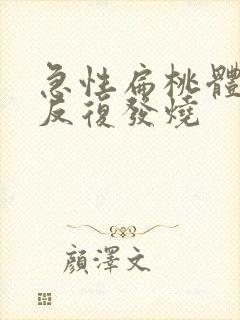 急性扁桃體
反復發燒
顏澤文